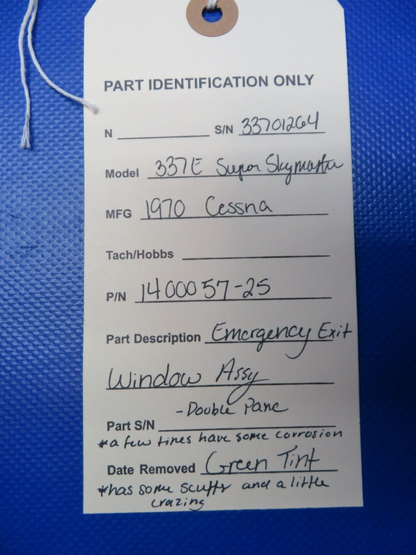 PART IDENTIFICATION ONLY
N S/N 33701264
Model 337E Super Skymaster
MFG 1970 Cessna
Tach/Hobbs
P/N 1400057-25
Part Description Emergency Exit
Window Assy
- Double Pane
Part S/N
*a few tines have some corrosion
Date Removed Green Tint
*has some scuffs and a little
crazing